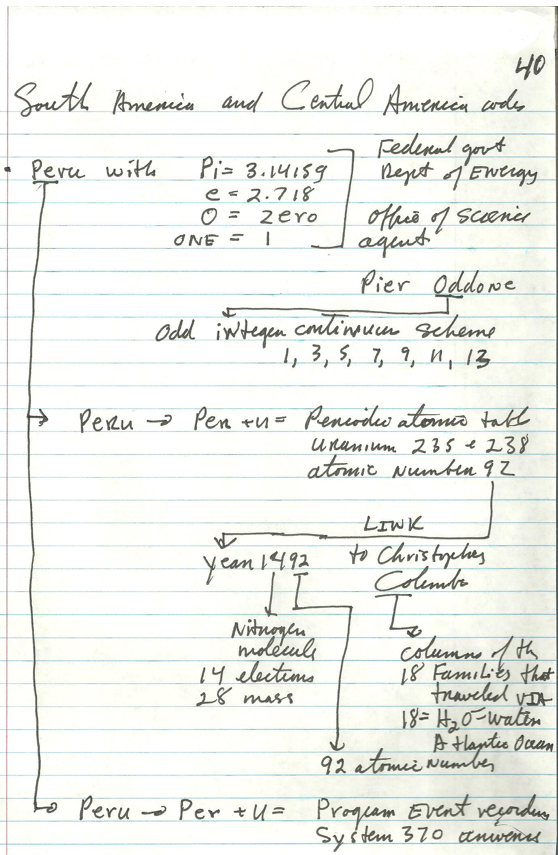 40
South America and Central America codes
• Peru with Pi = 3.14159
e = 2.718
0 = zero
ONE = 1
Federal govt
Dept of Energy
Office of Science
agent
Pier Oddone
Odd integer continuous scheme
1, 3, 5, 7, 9, 11, 13
PERU → Per + u = Periodic atomic tabl
Uranium 235 & 238
atomic Number 92
LINK
year 1492 to Christopher
Columb
Nitrogen
molecule
14 electrons
28 mass
columns of th
18 Families that
traveled VIA
18 = H2O-water
Atlantic Ocean
92 atomic Number
Peru → Per + U = Program Event recording
System 370